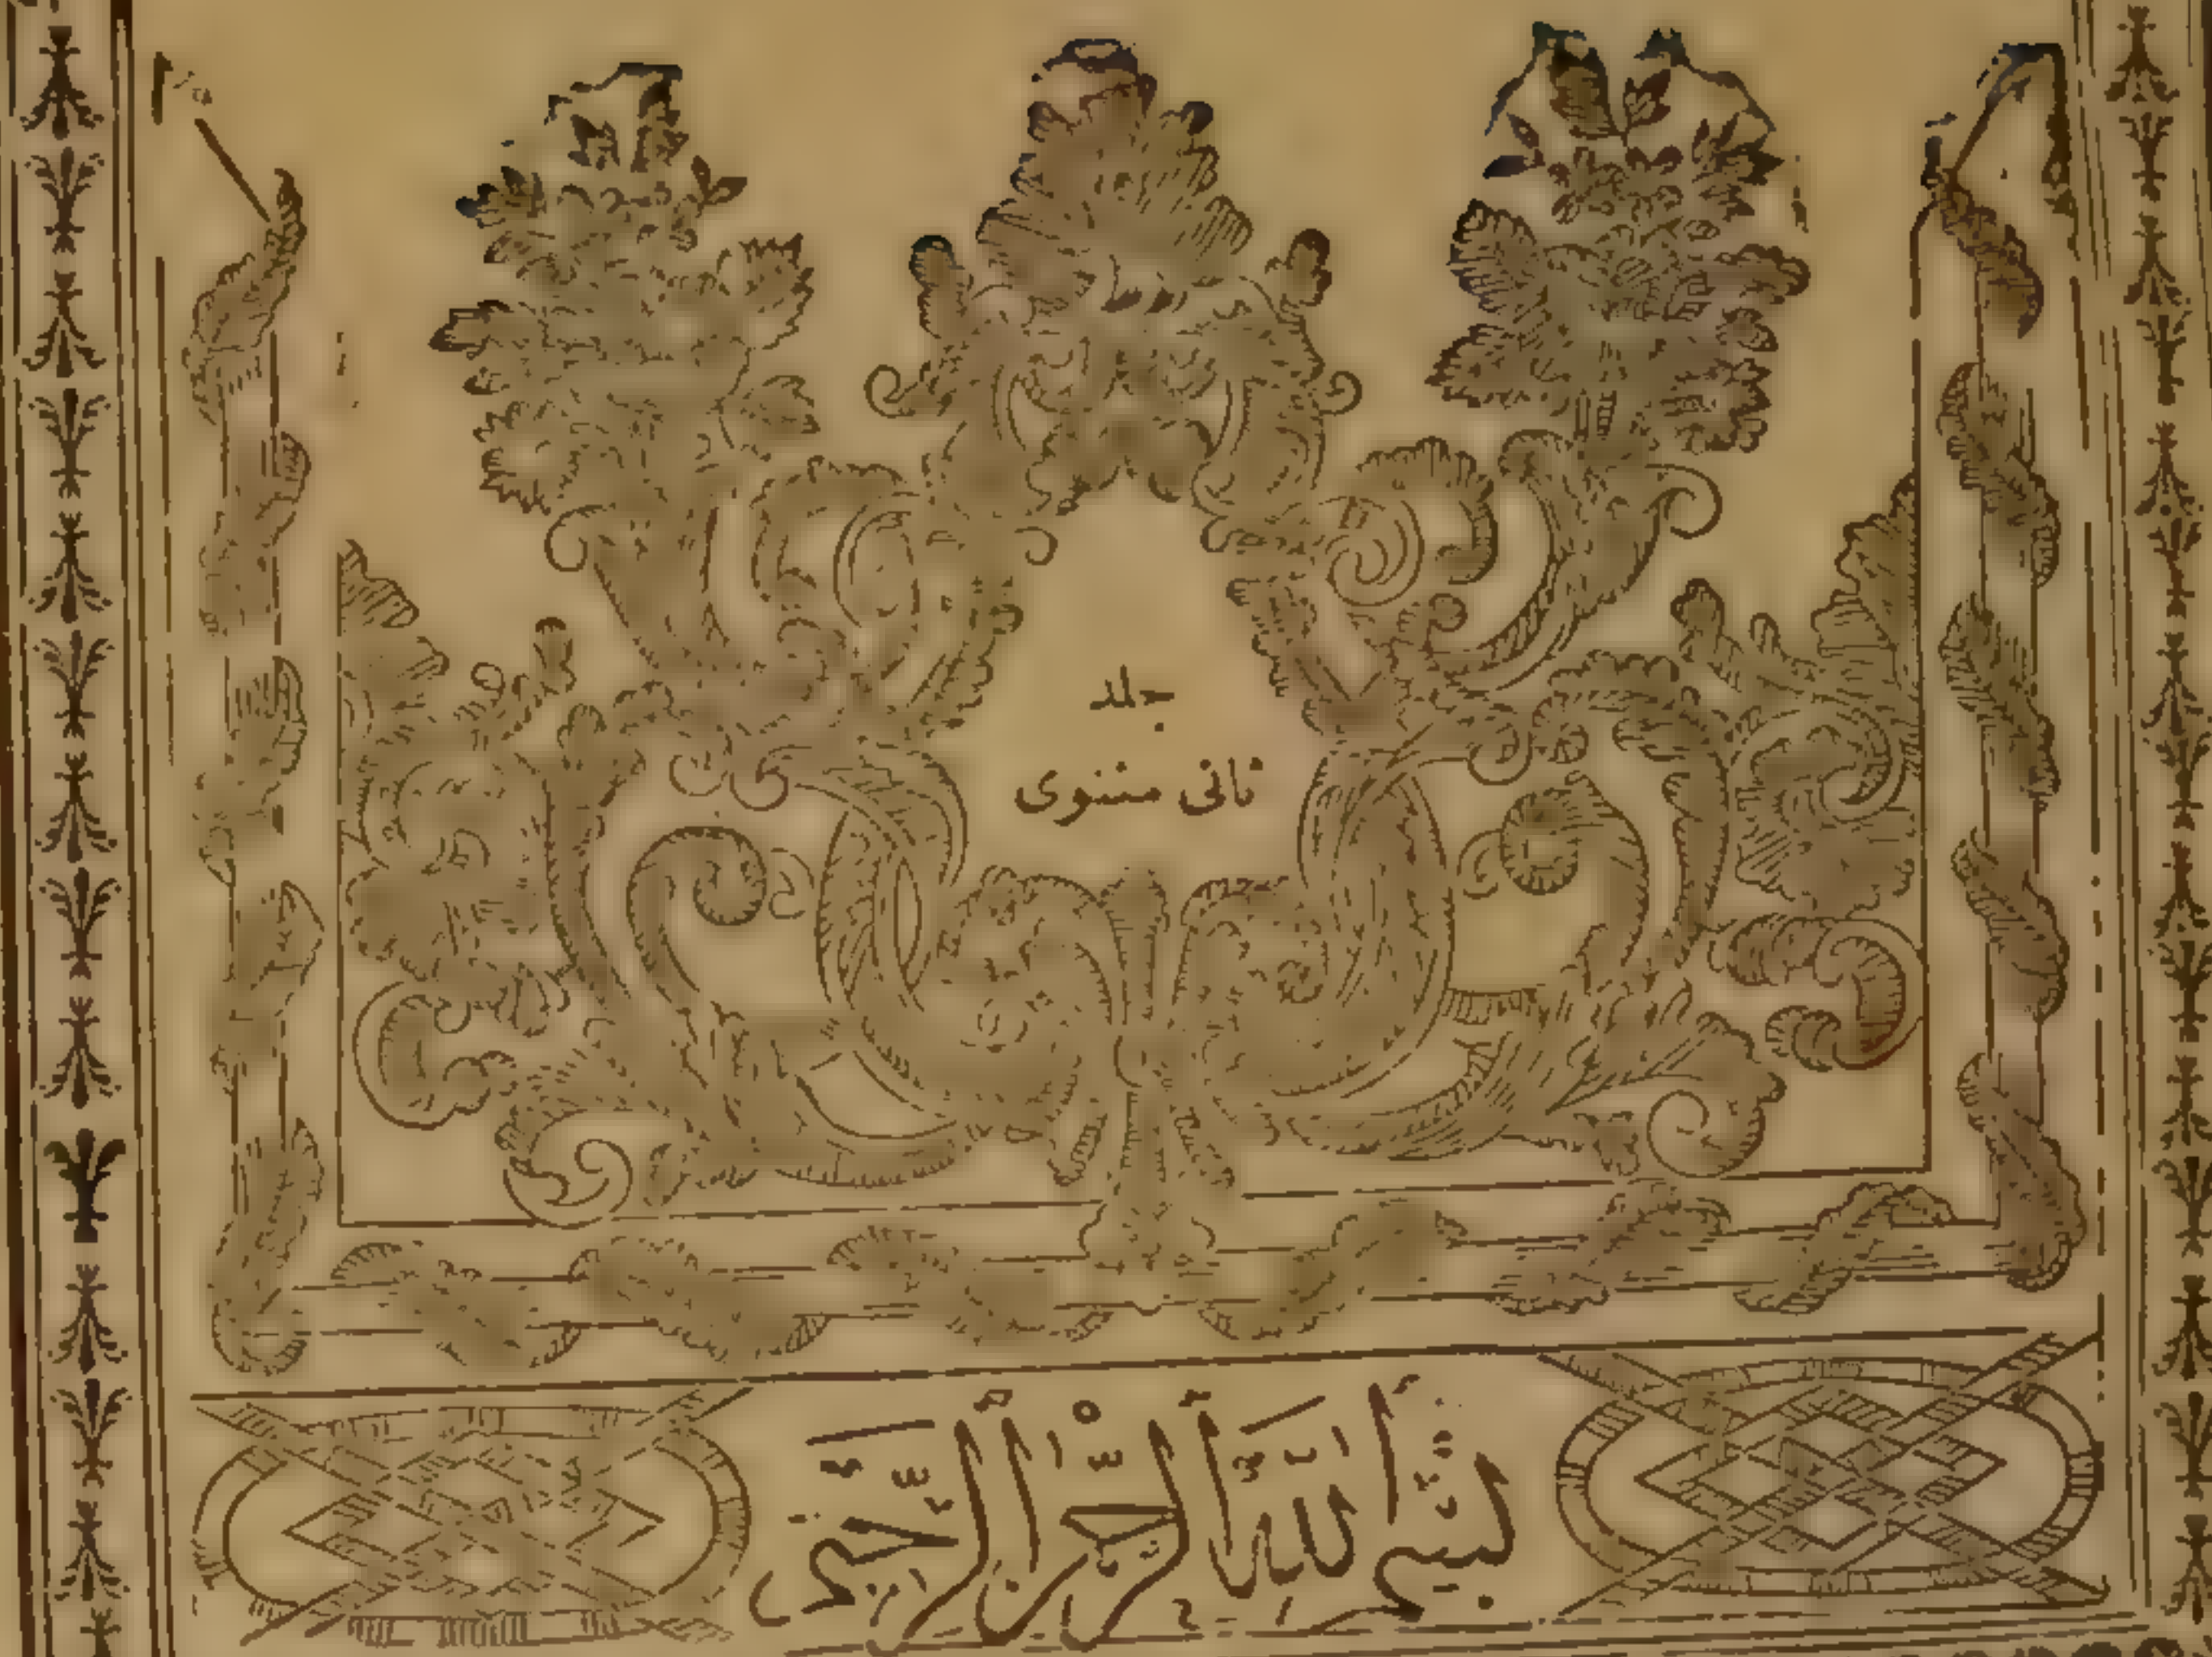 جلد
ثانی مثنوی
بسم الله الرحمن الرحيم